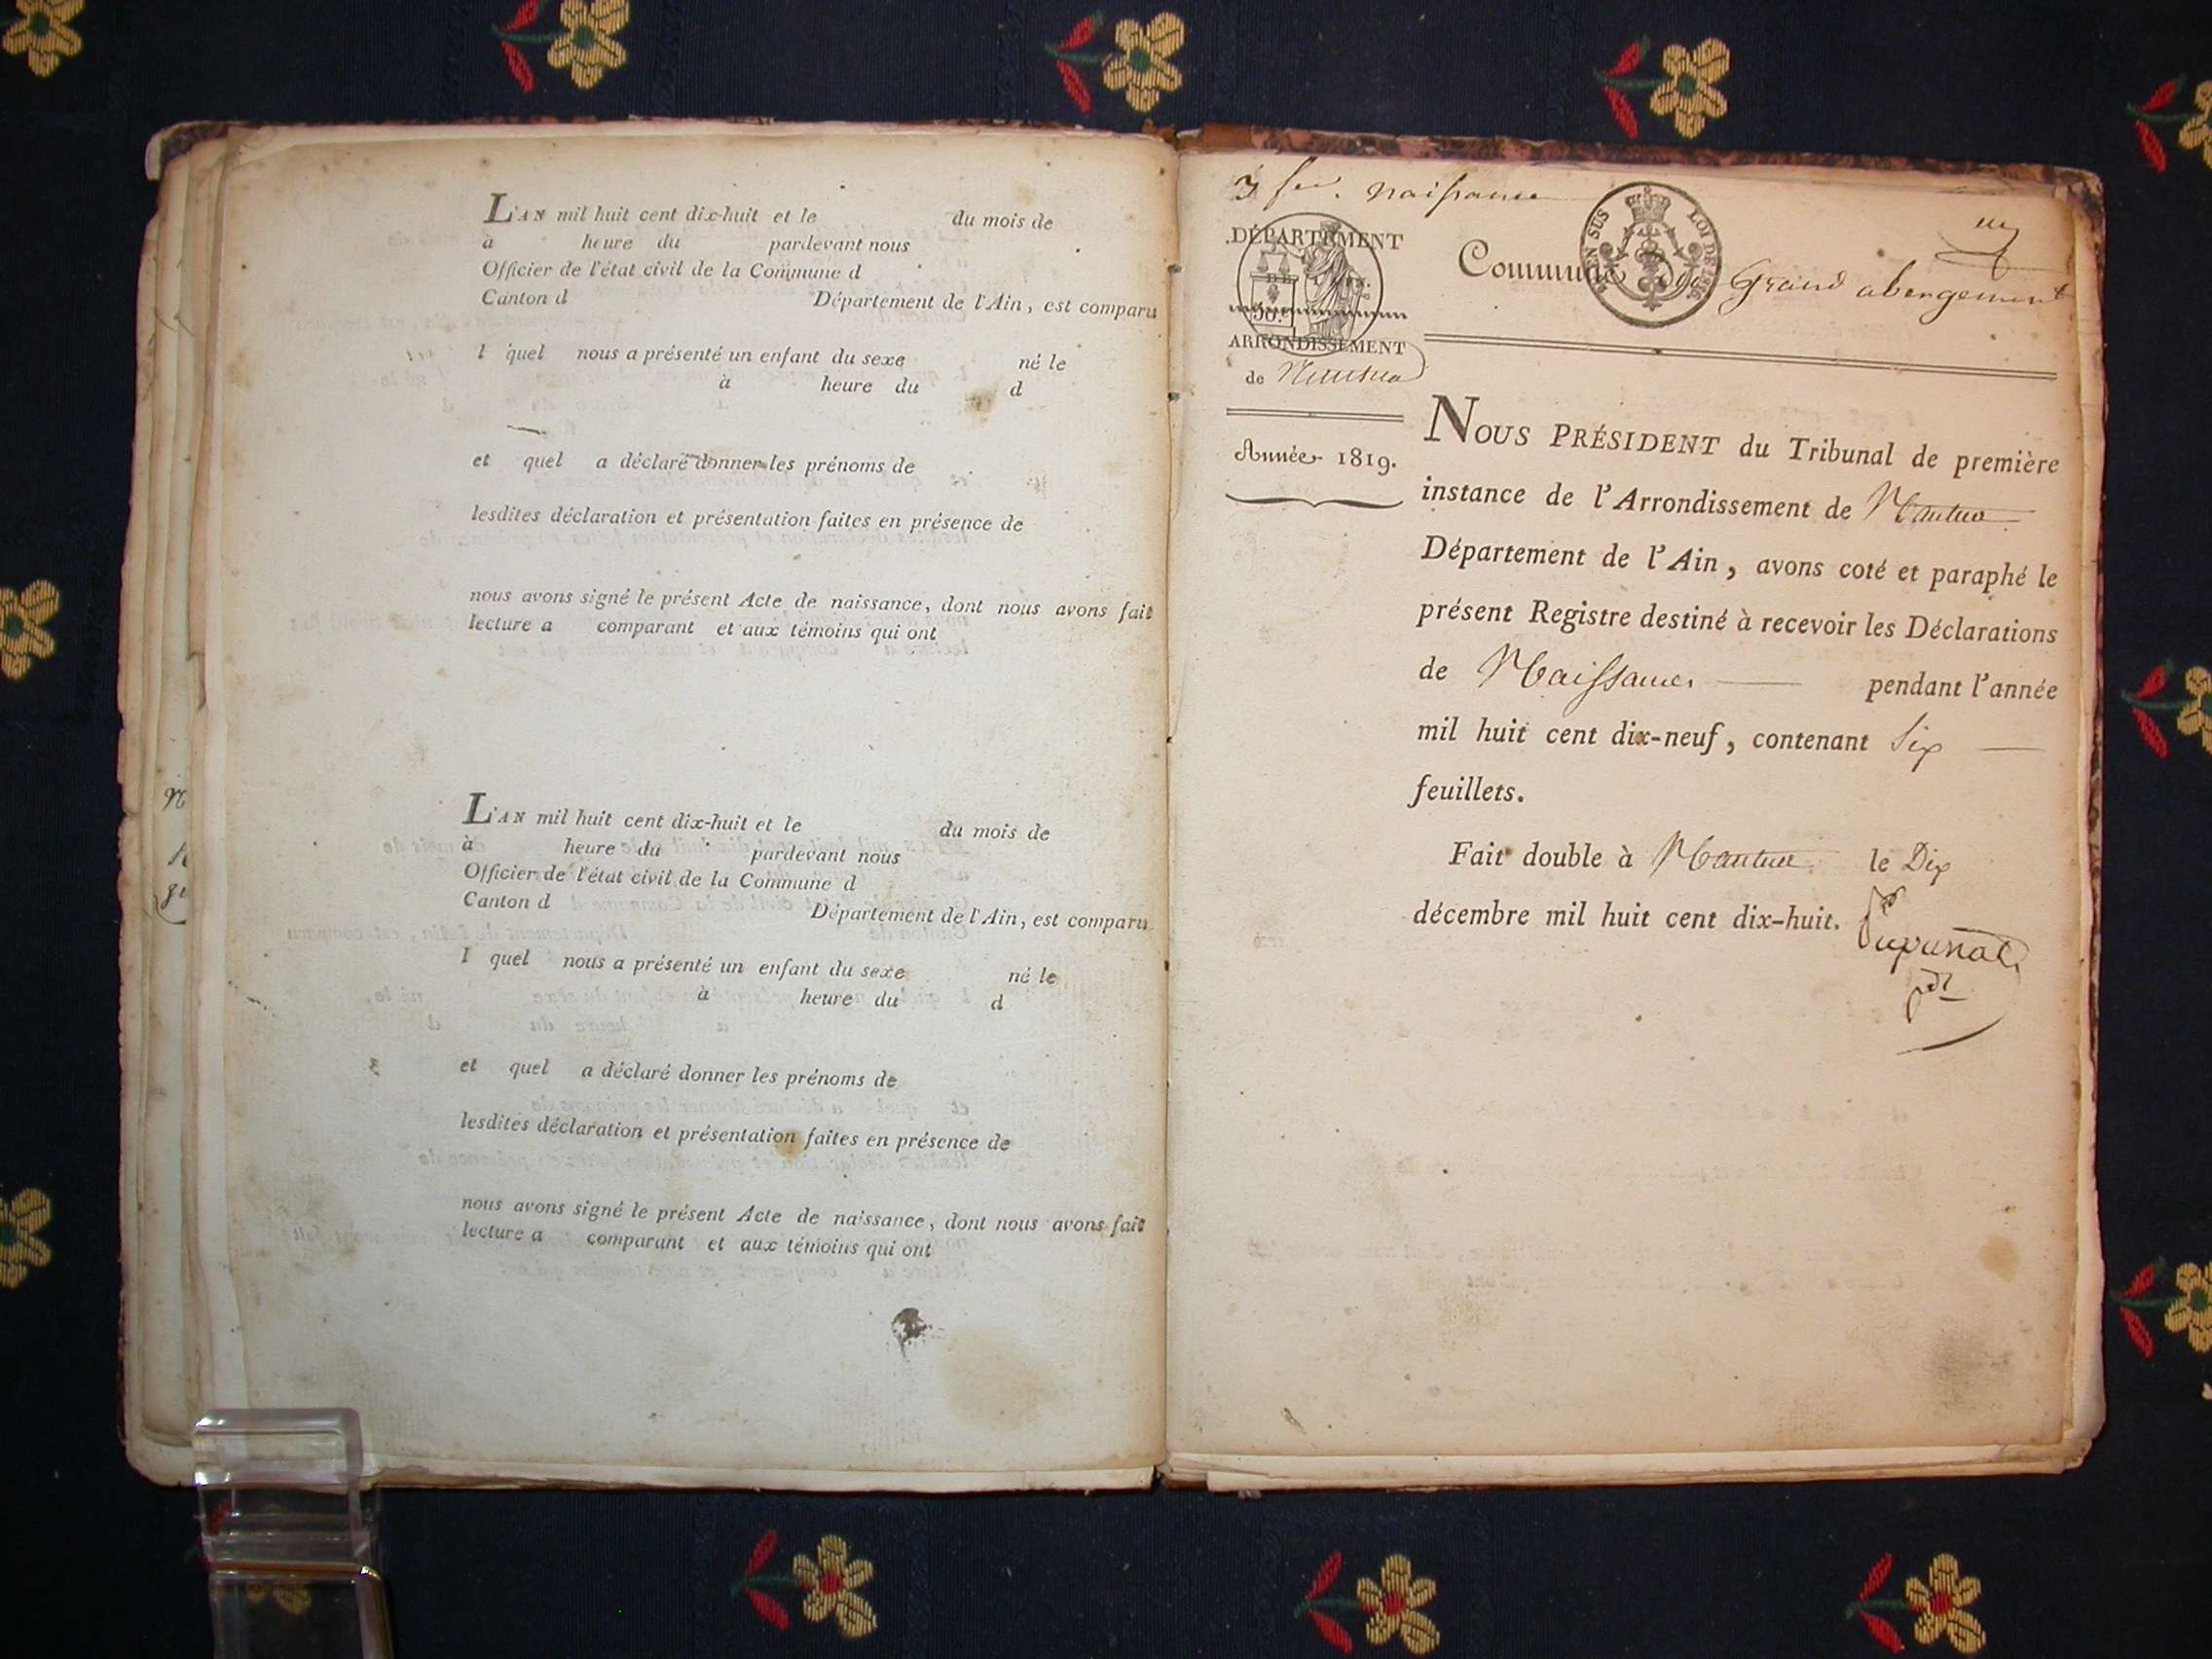 L'AN mil huit cent dix-huit et le du mois de
à heure du pardevant nous
Officier de l'état civil de la Commune d
Canton d Département de l'Ain, est comparu
l quel nous a présenté un enfant du sexe né le
à heure du d
et quel a déclaré donner les prénoms de
lesdites déclaration et présentation faites en présence de
nous avons signé le présent Acte de naissance, dont nous avons fait
lecture a comparant et aux témoins qui ont
L'AN mil huit cent dix-huit et le du mois de
à heure du pardevant nous
Officier de l'état civil de la Commune d
Canton d Département de l'Ain, est comparu
l quel nous a présenté un enfant du sexe né le
à heure du d
et quel a déclaré donner les prénoms de
lesdites déclaration et présentation faites en présence de
nous avons signé le présent Acte de naissance, dont nous avons fait
lecture a comparant et aux témoins qui ont
naissance
DÉPARTEMENT
DE L'AIN.
ARRONDISSEMENT
de Nantua
Année 1819.
EN SUS LOI DE
Commune Grand abergement
NOUS PRÉSIDENT du Tribunal de première
instance de l'Arrondissement de Nantua
Département de l'Ain, avons coté et paraphé le
présent Registre destiné à recevoir les Déclarations
de Naissances pendant l'année
mil huit cent dix-neuf, contenant Six
feuillets.
Fait double à Nantua le Dix
décembre mil huit cent dix-huit.